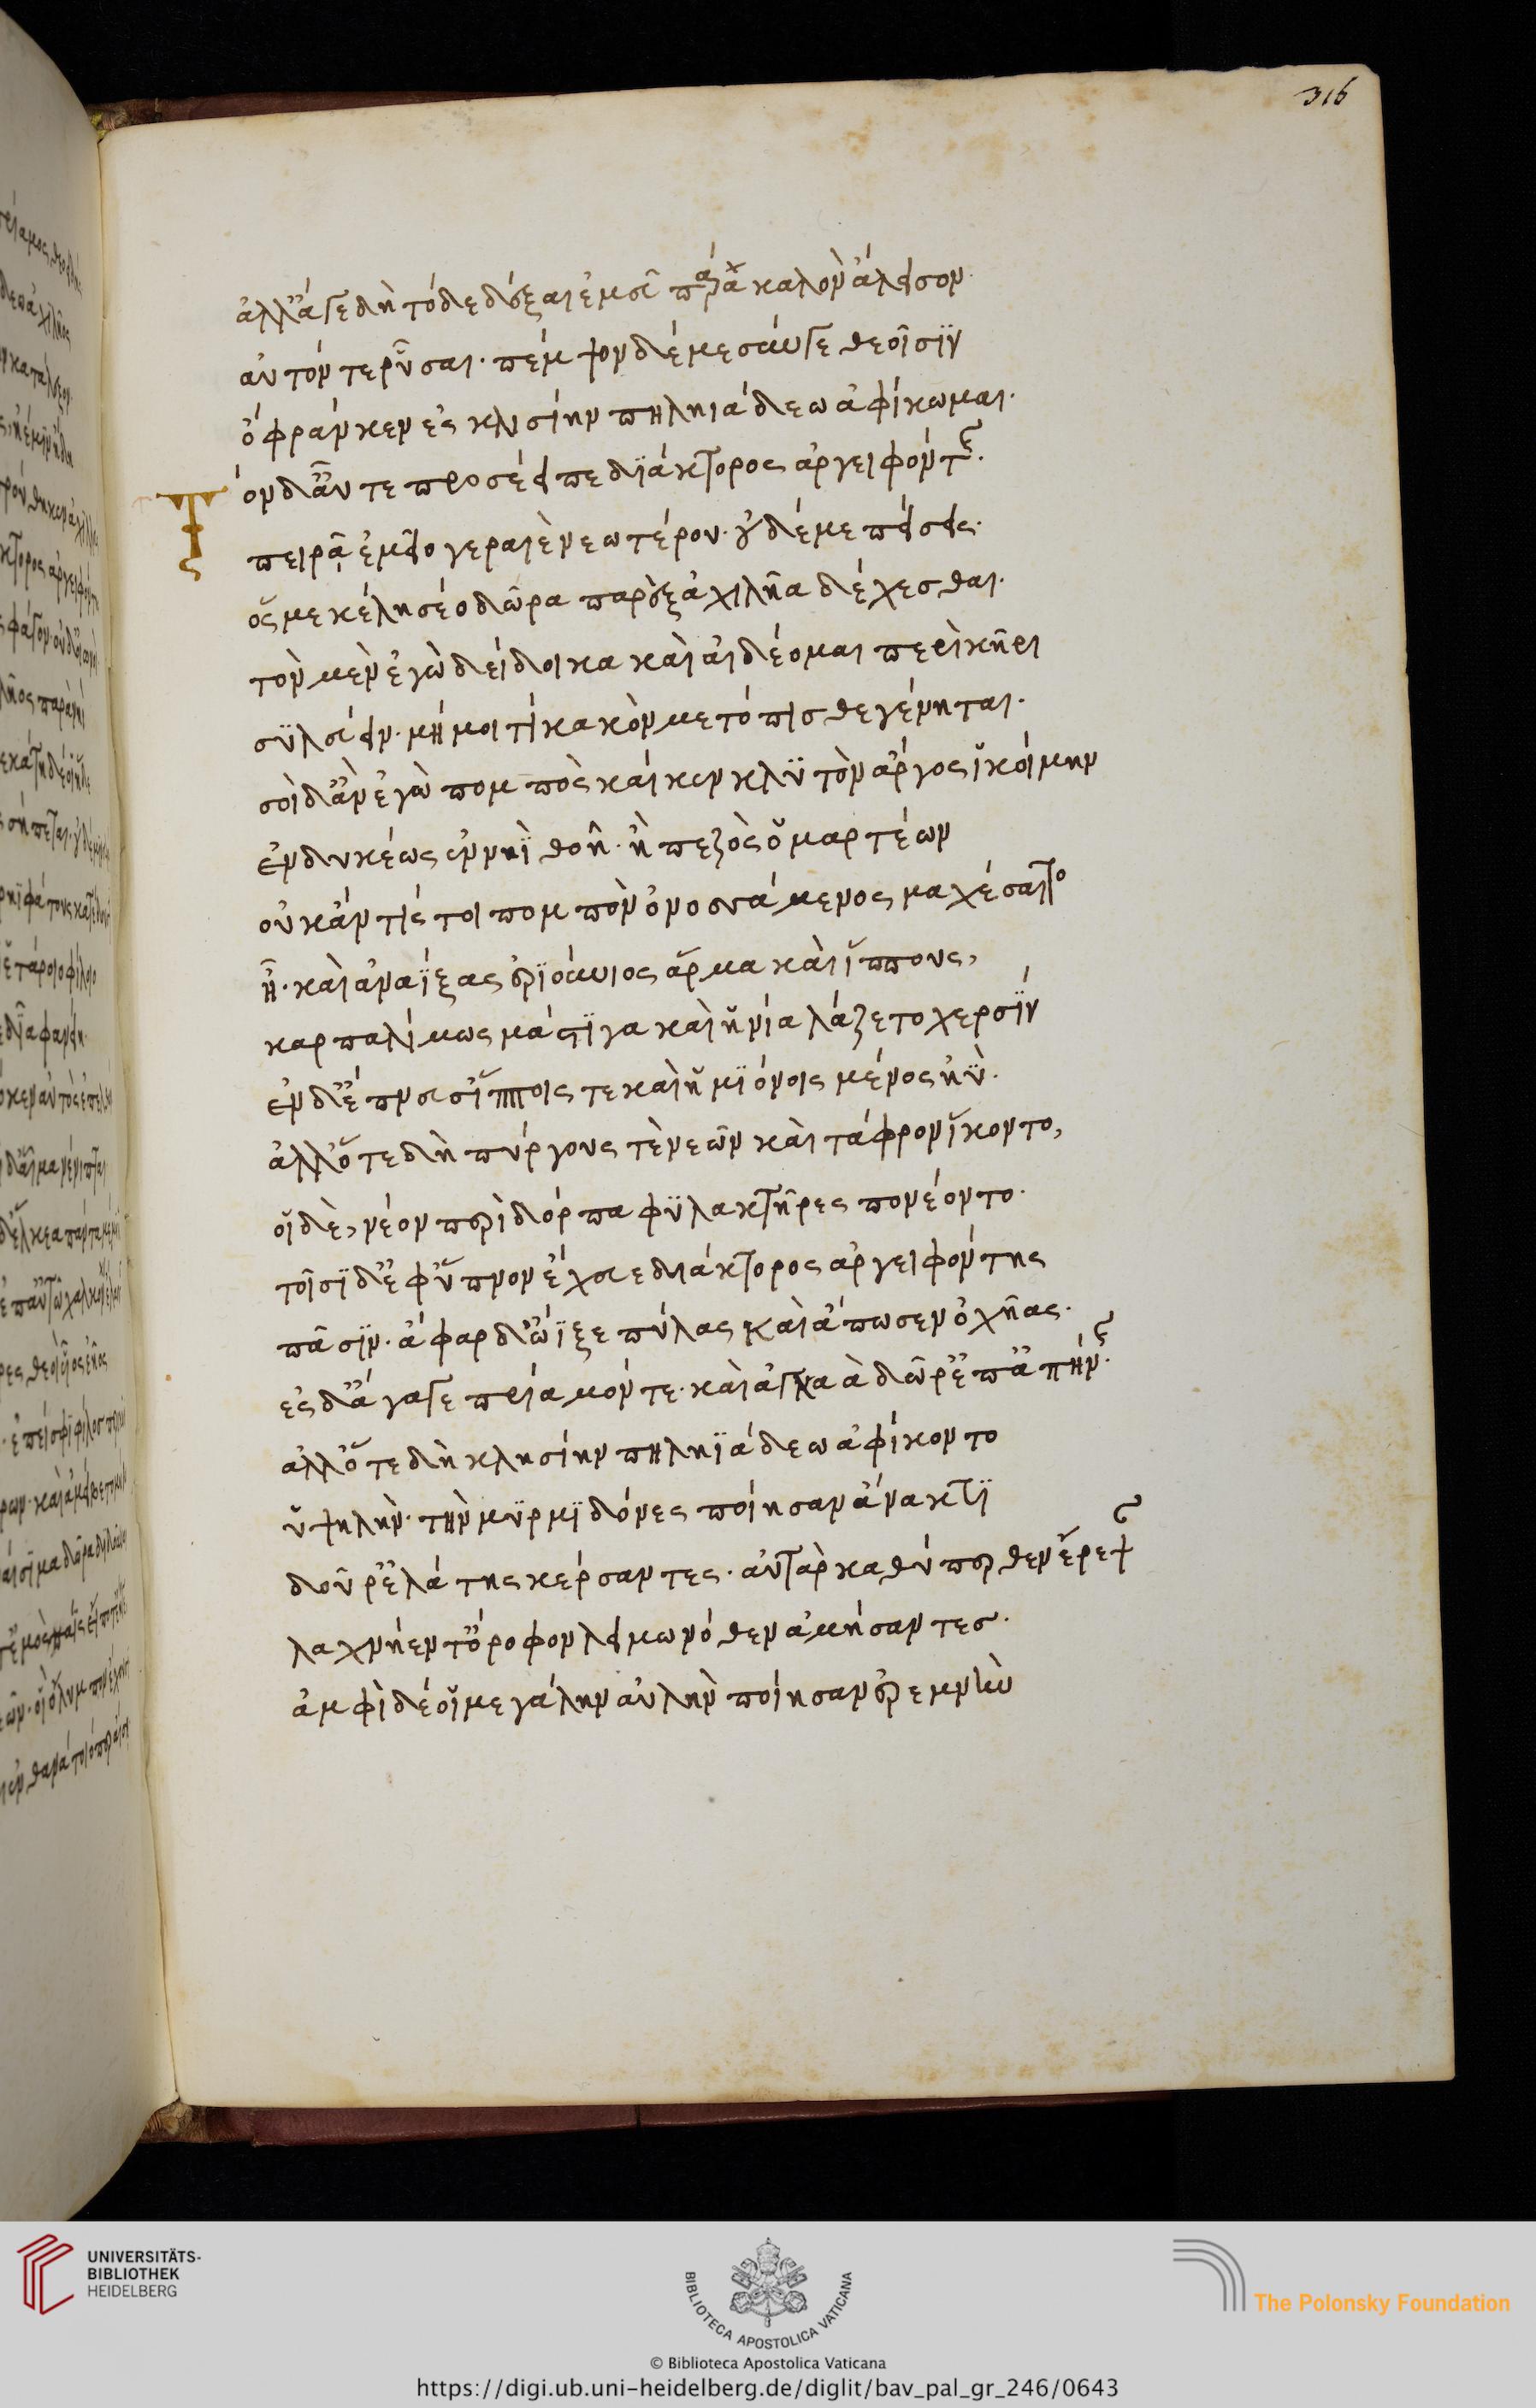 316
ἀλλ' ἄγε δὴ τόδε δέξαι ἐμοῦ πάρα καλὸν ἄλεισον
αὐτόν τε ῥῦσαι· πέμψον δέ με σύν γε θεοῖσϊν
ὄφρά νκεν ἐς κλισίην πηληιάδεω ἀφίκωμαι·
Τὸν δ' αὖτε προσέειπε διάκτορος ἀργειφόντης·
πειρᾷ ἐμεῖο γεραιὲ νεωτέρου· οὐδέ με πείσεις·
ὅς με κέλῃ σέο δῶρα παρὲξ ἀχιλῆα δέχεσθαι·
τὸν μὲν ἐγὼ δείδοικα καὶ αἰδέομαι περὶ κῆρι
συλεύειν· μή μοι τί κακὸν μετόπισθε γένηται·
σοὶ δ' ἂν ἐγὼ πομπὸς καί κεν κλϋτὸν ἄργος ἱκοίμην
ἐνδυκέως ἐν νηῒ θοῇ· ἢ πεζὸς ὁμαρτέων
οὐκ ἄν τίς τοι πομπὸν ὀνοσσάμενος μαχέσαιτο
ἦ· καὶ ἀναΐξας ἐριούνιος ἅρμα καὶ ἵππους,
καρπαλίμως μάστϊγα καὶ ἡνία λάζετο χερσϊν
ἐν δ' ἔπνευσ' ἵπποις τε καὶ ἡμϊόνοις μένος ἠΰ·
ἀλλ' ὅτε δὴ πύργους τὲ νεῶν καὶ τάφρον ἵκοντο,
οἳ δὲ, νέον περὶ δόρπα φϋλακτῆρες πονέοντο·
τοῖσϊ δ' ἐφ' ὕπνον ἔχευε διάκτορος ἀργειφόντης
πᾶσϊν· ἄφαρ δ' ὤϊξε πύλας καὶ ἄπωσεν ὀχῆας·
ἐς δ' ἄγαγε πρίαμόν τε· καὶ ἀγλαὰ δῶρ' ἐπ' ἀπήνης·
ἀλλ' ὅτε δὴ κλησίην πηληϊάδεω ἀφίκοντο
ὑψηλὴν· τὴν μϋρμϊδόνες ποίησαν ἄνακτϊ
δοῦρ' ἐλάτης κέρσαντες· αὐτὰρ καθύπερθεν ἔρεψαν
λαχνήεντ' ὄροφον λειμωνόθεν ἀμήσαντεσ·
ἀμφὶ δέ οἱ μεγάλην αὐλὴν ποίησαν
UNIVERSITÄTS-
BIBLIOTHEK
HEIDELBERG
BIBLIOTECA APOSTOLICA VATICANA
The Polonsky Foundation
© Biblioteca Apostolica Vaticana
https://digi.ub.uni-heidelberg.de/diglit/bav_pal_gr_246/0643